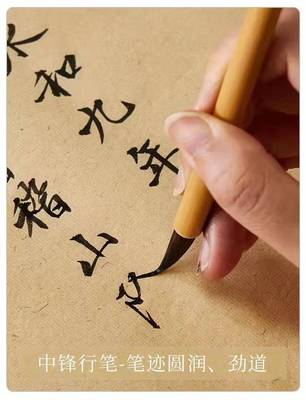 和九年
稽山
中锋行笔-笔迹圆润、劲道